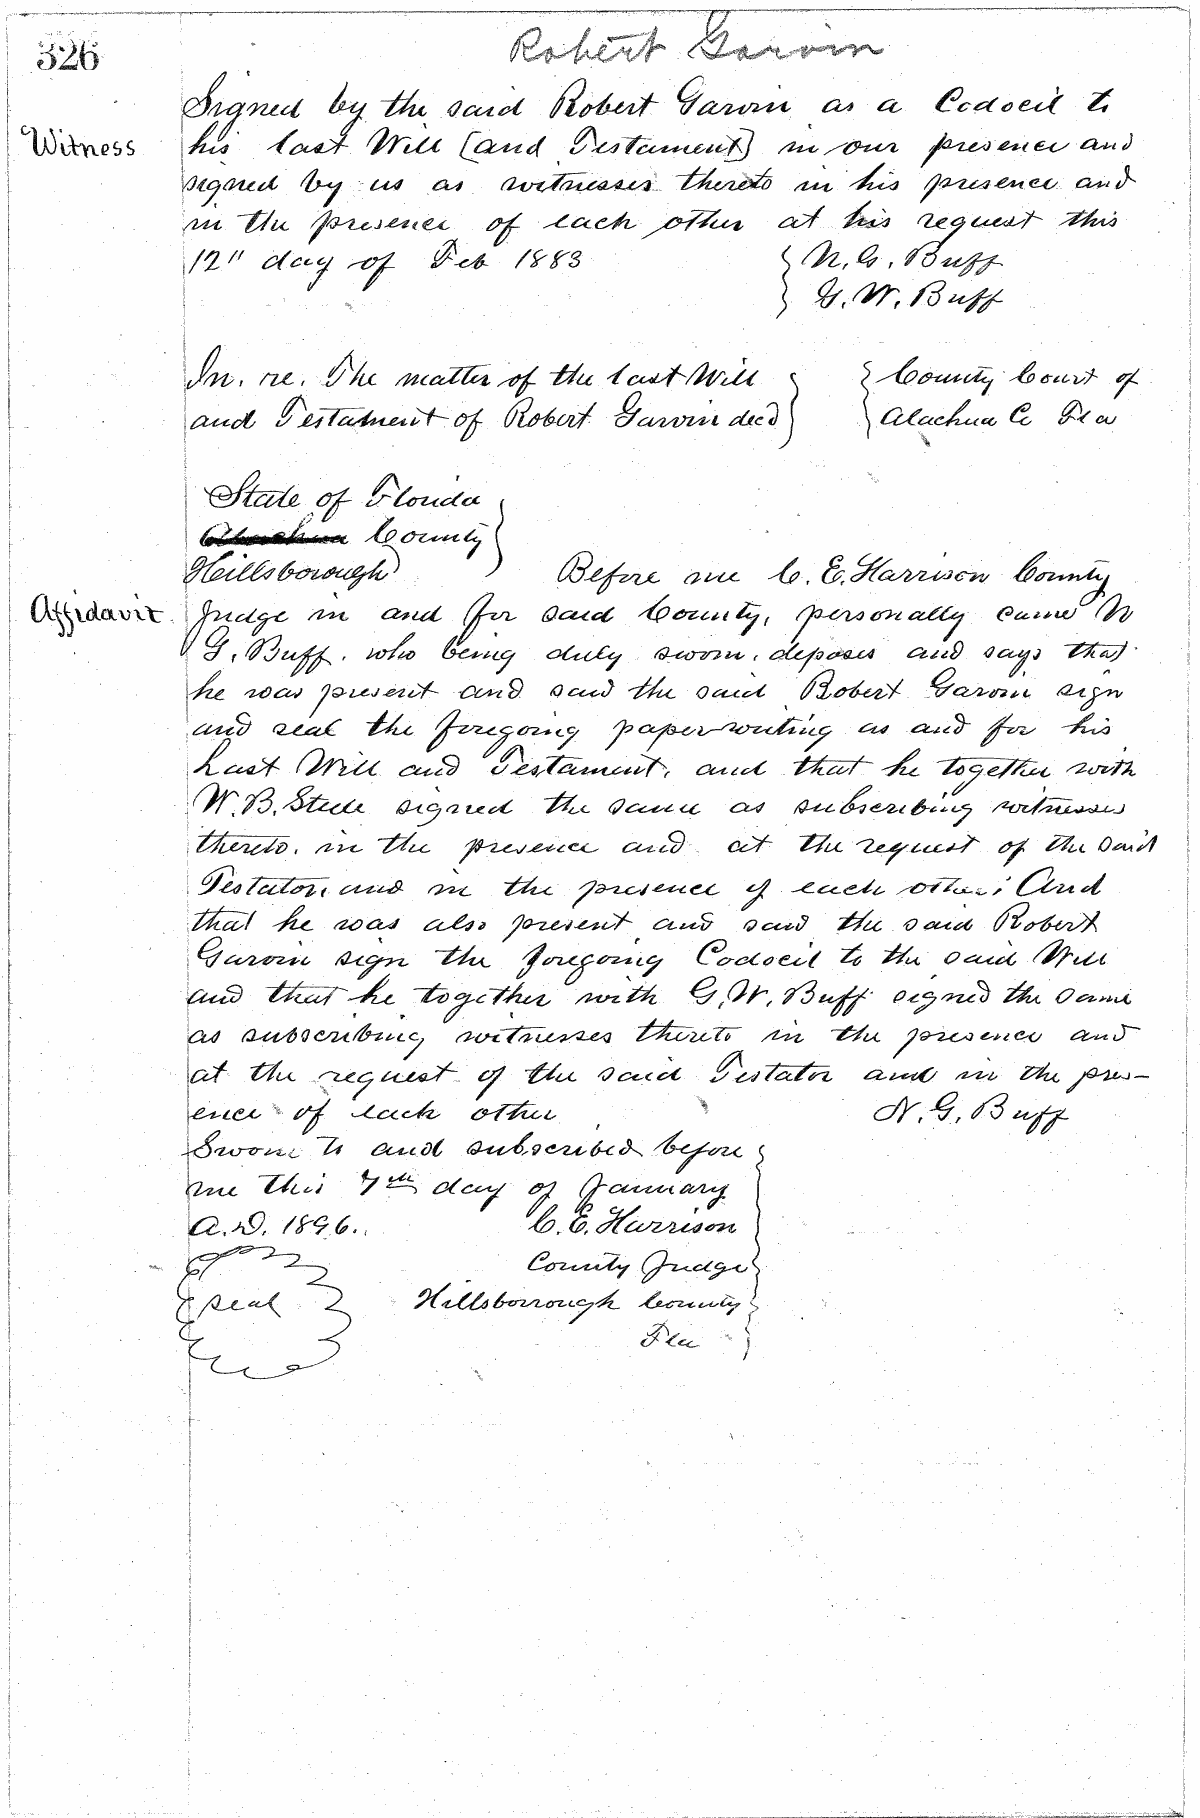 326
Robert Garvin
Signed by the said Robert Garvin as a Codocil to
Witness
his last Will (and Testament) in our presence and
signed by us as witnesses thereto in his presence and
in the presence of each other at his request this
12" day of Feb 1883
N. G. Buff
G. W. Buff
In. re. The matter of the last Will
and Testament of Robert Garvin decd
County Court of
Alachua Co Fla
State of Florida
Alachua County
Hillsborough
Before me C. E. Harrison County
Affidavit
Judge in and for said County, personally came N
G. Buff. who being duly sworn, deposes and says that
he was present and said the said Robert Garvin sign
and seal the foregoing paper-writing as and for his
Last Will and Testament, and that he together with
W. B. Steele signed the same as subscribing witnesses
thereto. in the presence and at the request of the said
Testator, and in the presence of each other; And
that he was also present and said the said Robert
Garvin sign the foregoing Codocil to the said Will
and that he together with G. W. Buff signed the same
as subscribing witnesses thereto in the presence and
at the request of the said Testator and in the pres-
ence of each other
N. G. Buff
Sworn to and subscribed before
me this 7th day of January
A. D. 1896.
C. E. Harrison
County Judge
seal
Hillsborrough County
Fla